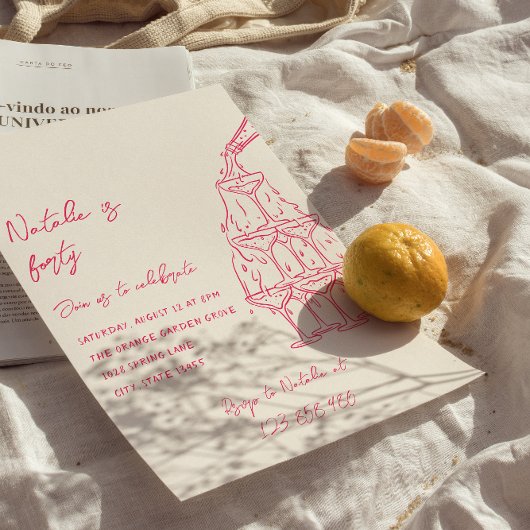 CARTA DO CEO
-vindo ao nos
UNIVER
Natalie is
forty
Join us to celebrate
SATURDAY, AUGUST 12 AT 8PM
THE ORANGE GARDEN GROVE
1028 SPRING LANE
CITY, STATE 13455
Rsvp to Natalie at
123-858-486